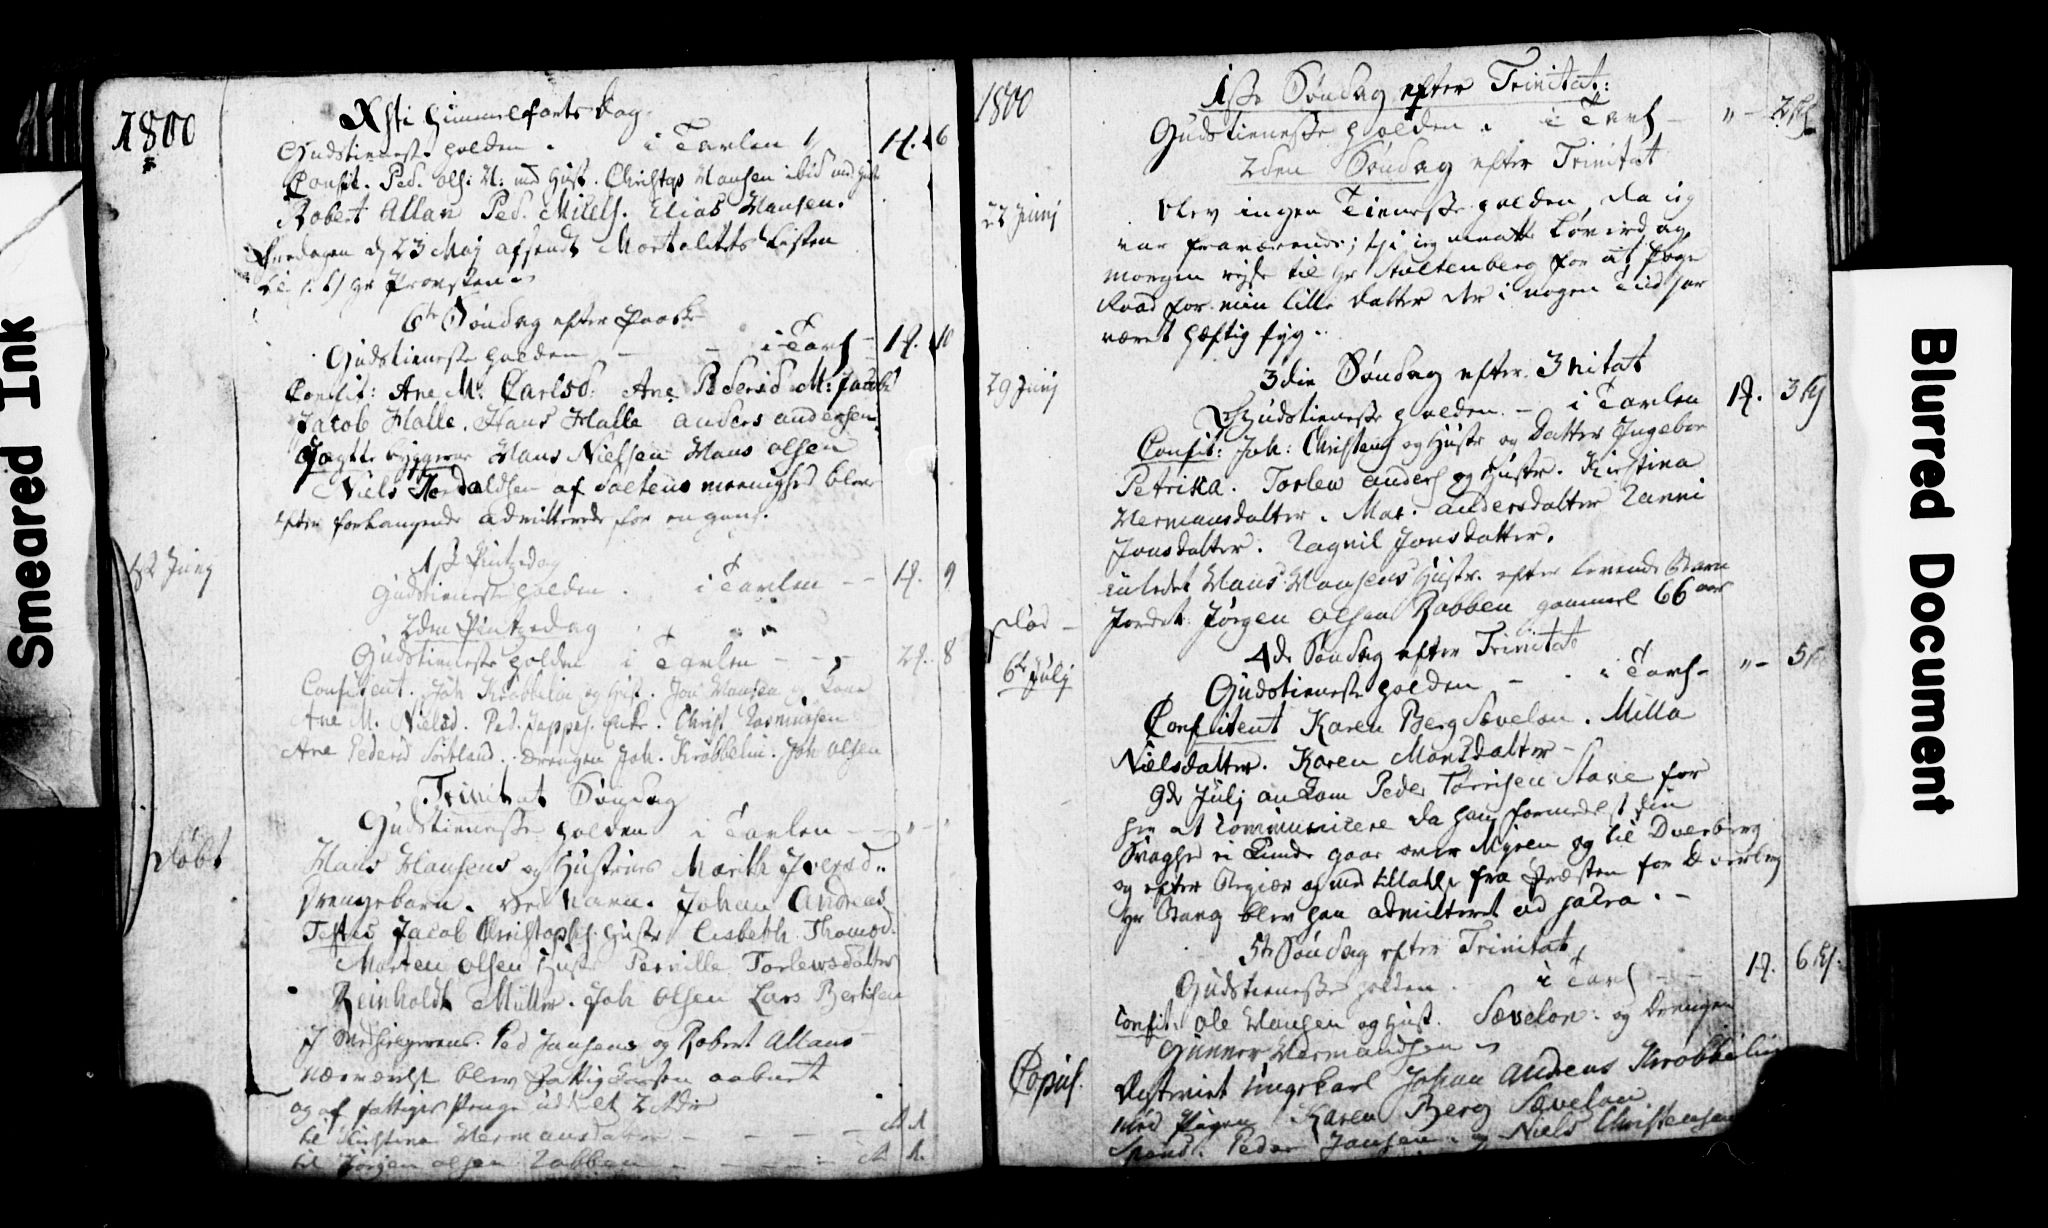 Smeared Ink
1800
Xsti Himmelfarts dag.
Gudstieneste holden. i Tarlen
Confit. Ped. Ols: M: med Hust. Christop Hansen ibid med Hust
Robert Allan Ped. Milels. Elias Hansen.
d 23 Maj afsendt Mortalitets Listen
til Hr Provsten
6te Søndag efter Paaske
Gudstieneste holden - - i Tarls 1 f. 10
Confit: Ane M. Carlsd. Ane Pedersd M: Jacobs
Jacob Halle. Hans Halle Anders Andersen
Jagtte bÿggerne Hans Nielsen Hans Olsen
Niels af Saltens menighed blev
efter forlangende admitterede for en gang.
1ste Pintzedag
1ste Junj
Gudstieneste holden. i Tarlen - - 1 f. 9
2den Pintzedag
Gudstieneste holden i Tarlen - - - 2 f. 8
Confitent. Joh Krøbbelin og Hust. Joh Hansen og Kone
Ane M. Nielsd. Ped. Jeppes. Enke. Christ Rasmussen
Ane Pedersd Sortland. Drengen Joh. Krøbbelin. Joh Olsen
Trinitat Søndag
Gudstieneste holden i Tarlen - -
Døbt
Hans Hansens og Hustrues Marith Iversd.
Drengebarn. ved Navn. Johan Andreas
Testes Jacob Christophs. Hustr Lisbeth Thomsd.
Morten Olsen Hustr Pernille Torlewsdatter
Reinholdt Müller. Joh Olsen Lars Bertelsen
J Medhielpernes. Ped Jansens og Robert Allans
nærværelse blev Fattig Kassen aabnet
og af fattiges Penge uddelet 2 Rdr
til Kirstina Hermansdatter - - - -
til Jørgen Olsen Rabben - - -
1800
1ste Søndag efter Trinitat:
Gudstieneste holden. i Tarls - " - 2 ß
2den Søndag efter Trinitat
22 Junj
blev ingen Tieneste holden, da ieg
var fraværende; thi ieg maatte Løverdag
morgen rejse til Hr Stoltenberg for at søge
Raad for min lille datter der i nogen Tiid har
været hæftig syg.
3die Søndag efter 3nitat
29 Junj
Gudstieneste holden. - i Tarlen 1 f. 3 ß
Confit: Joh: Christens og Hustr og Datter Ingebor
Petrika. Torlew Anders og Hustr. Kirstina
Hermansdatter. Mar. Andersdatter Zanni
Jonsdatter. Ragnil Jonsdatter.
inledet Hans Hansens Hustr. efter levende Barn
Jordet Jørgen Olsen Rabben gammel 66 aar
4de Søndag efter Trinitat
6te Julj
Gudstieneste holden - . i Tarls - " - 5 ß
Confitent Karen Berg Sævelon. Milla
Nielsdatter. Karen Monsdatter -
9de Julj ankom Peder Tørrisen Stave for
her at communicere da han formedelst sin
Svaghed ei kunde gaae over Myren og til Dverberg
og efter Begiær og med tilladelse fra Præsten for Dverberg
Hr Bang blev han admitteret ad sacra. -
5te Søndag efter Trinitat
Gudstieneste holden. i Tarls - - 1 f. 6 ß.
Confit: Ole Hansen og Hust. Sævelon. og Drengen
Gunner Hermandsen
Copul.
Ungekarl Johan Andreas Krøbbelin
med Pigen Karen Berg Sævelon
Spond. Peder Jansen. og Niels Christensen
Blurred Document